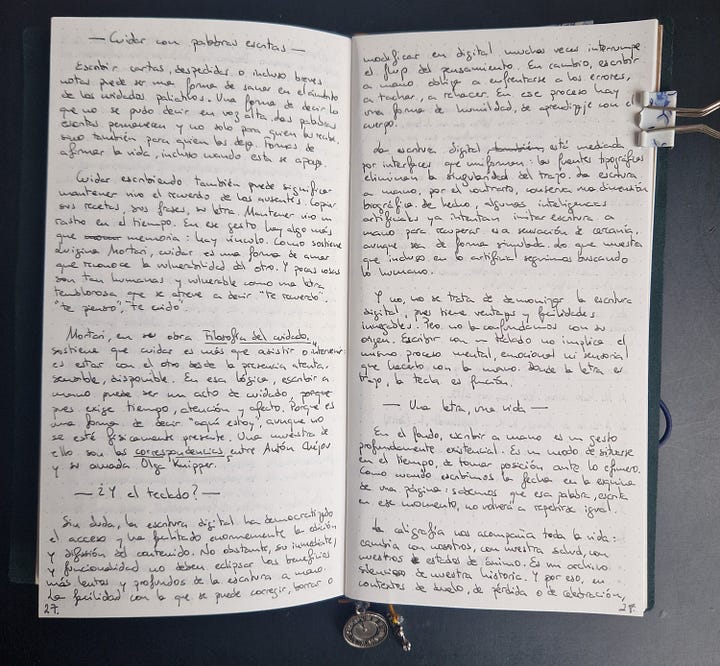 — Cuidar con palabras escritas —
Escribir cartas, despedidas o incluso breves
notas puede ser una forma de sanar en el ámbito
de los cuidados paliativos. Una forma de decir lo
que no se pudo decir en voz alta. Las palabras
escritas permanecen y no solo para quien las recibe,
sino también para quien las deja. Formas de
afirmar la vida, incluso cuando esta se apaga.
Cuidar escribiendo también puede significar
mantener vivo el recuerdo de los ausentes. Copiar
sus recetas, sus frases, su letra. Mantener vivo un
rastro en el tiempo. En ese gesto hay algo más
que memoria: hay vínculo. Como sostiene
Luigina Mortari, cuidar es una forma de amar
que reconoce la vulnerabilidad del otro. Y pocas cosas
son tan humanas y vulnerable como una letra
temblorosa que se atreve a decir "te recuerdo".
"te pienso", "te cuido".
Mortari, en su obra Filosofía del cuidado,
sostiene que cuidar es más que asistir o intervenir:
es estar con el otro desde la presencia atenta,
sensible, disponible. En esa lógica, escribir a
mano puede ser un acto de cuidado, porque
pues exige tiempo, atención y afecto. Porque es
una forma de decir "aquí estoy", aunque no
se esté físicamente presente. Una muestra de
ello son las correspondencias entre Antón Chéjov
y su amada Olga Knipper.
— ¿Y el teclado? —
Sin duda, la escritura digital ha democratizado
el acceso y ha facilitado enormemente la edición
y difusión del contenido. No obstante, su inmediatez
y funcionalidad no deben eclipsar los beneficios
más lentos y profundos de la escritura a mano.
La facilidad con la que se puede corregir, borrar o
27.
modificar en digital muchas veces interrumpe
el flujo del pensamiento. En cambio, escribir
a mano obliga a enfrentarse a los errores,
a tachar, a rehacer. En ese proceso hay
una forma de humildad, de aprendizaje con el
cuerpo.
La escritura digital, también, está mediada
por interfaces que uniforman: las fuentes tipográficas
eliminan la singularidad del trazo. La escritura
a mano, por el contrario, conserva una dimensión
biográfica. De hecho, algunas inteligencias
artificiales ya intentan imitar escritura a
mano para recuperar esa sensación de cercanía,
aunque sea de forma simulada. Lo que muestra
que incluso en lo artificial seguimos buscando
lo humano.
Y no, no se trata de demonizar la escritura
digital, pues tiene ventajas y facilidades
innegables. Pero no la confundamos con su
origen. Escribir con un teclado no implica el
mismo proceso mental, emocional ni sensorial
que hacerlo con la mano. Donde la letra es
trazo, la tecla es función.
— Una letra, una vida —
En el fondo, escribir a mano es un gesto
profundamente existencial. Es un modo de situarse
en el tiempo, de tomar posición ante lo efímero.
Como cuando escribimos la fecha en la esquina
de una página: sabemos que esa palabra, escrita
en ese momento, no volverá a repetirse igual.
La caligrafía nos acompaña toda la vida:
cambia con nosotros, con nuestra salud, con
nuestros estados de ánimo. Es un archivo
silencioso de nuestra historia. Y por eso, en
contextos de duelo, de pérdida o de celebración,